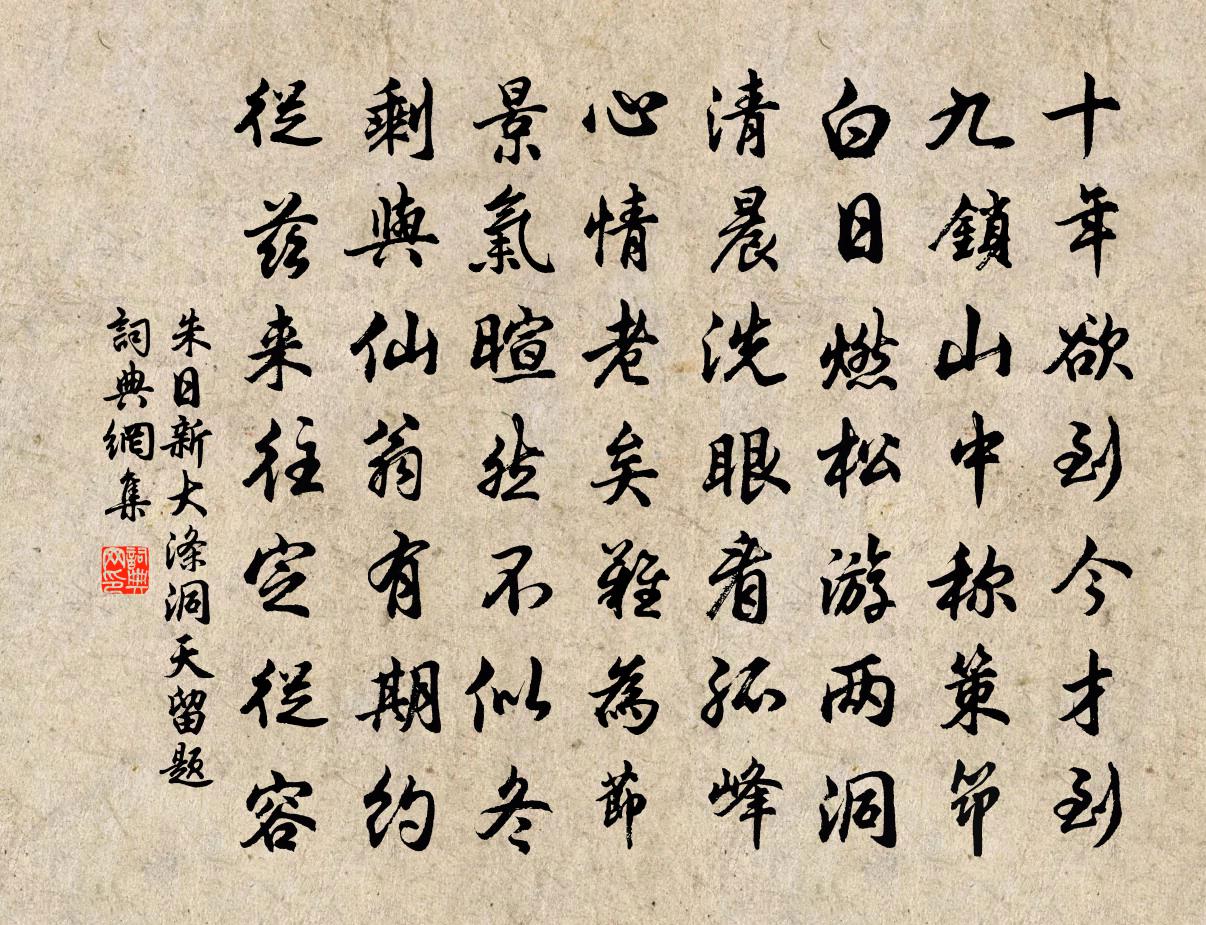 十年欲到今才到
九鎖山中称策筇
白日燃松游两洞
清晨洗眼看孤峰
心情老矣難為節
景氣暄然不似冬
剩與仙翁有期約
從茲来往定從容
朱日新大涤洞天留题
詞典網集
詞典网印